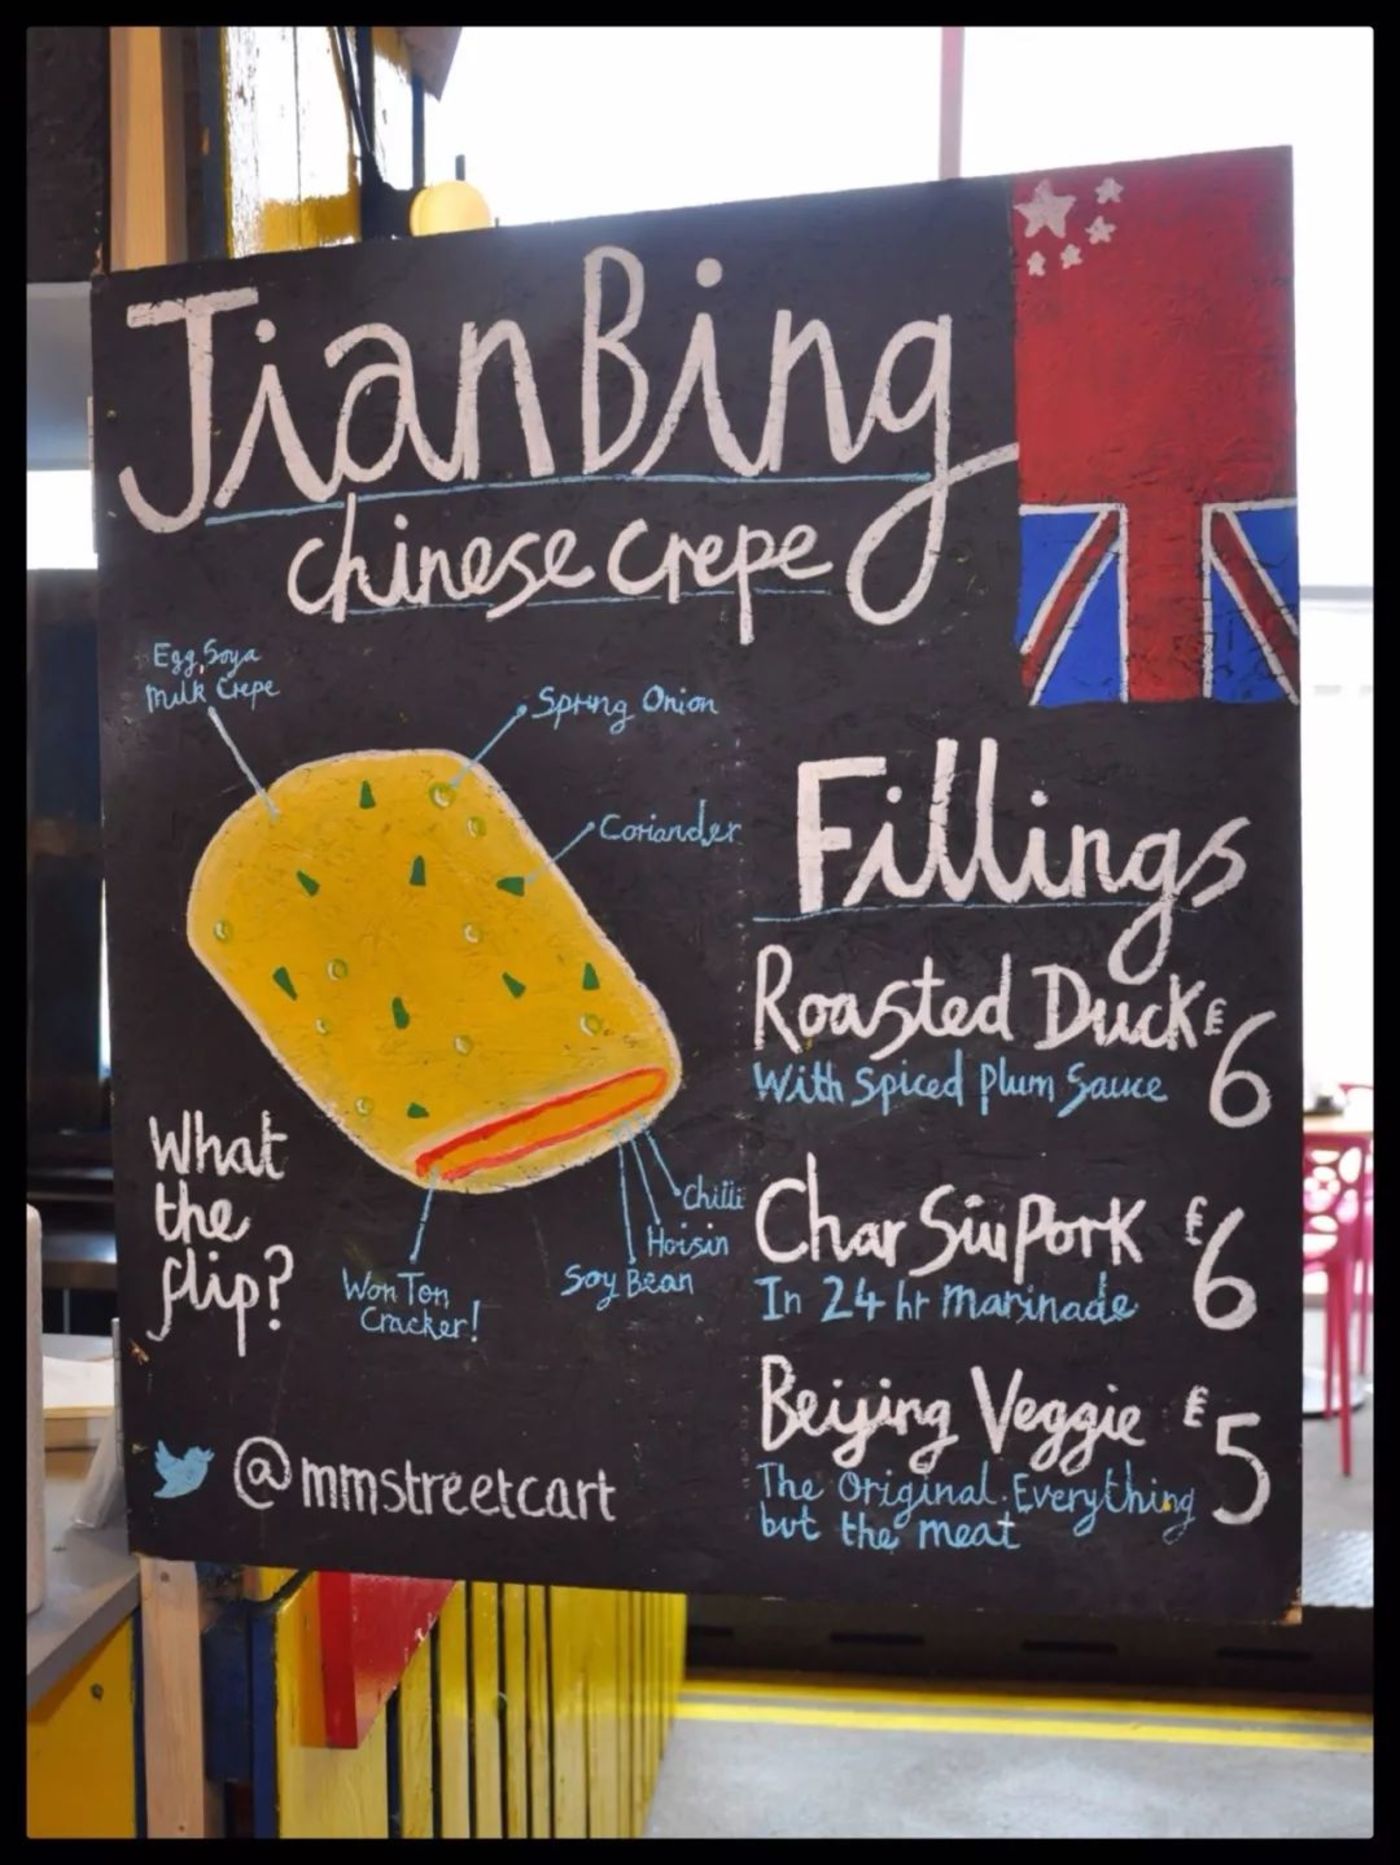 JianBing
chinese crepe
Egg, Soya
Milk Crepe
Spring Onion
Coriander
What
the
flip?
Won Ton
Cracker!
Chilli
Hoisin
Soy Bean
@mmstreetcart
Fillings
Roasted Duck £6
With Spiced Plum Sauce
Char Siu Pork £6
In 24 hr marinade
Beijing Veggie £5
The Original. Everything
but the meat